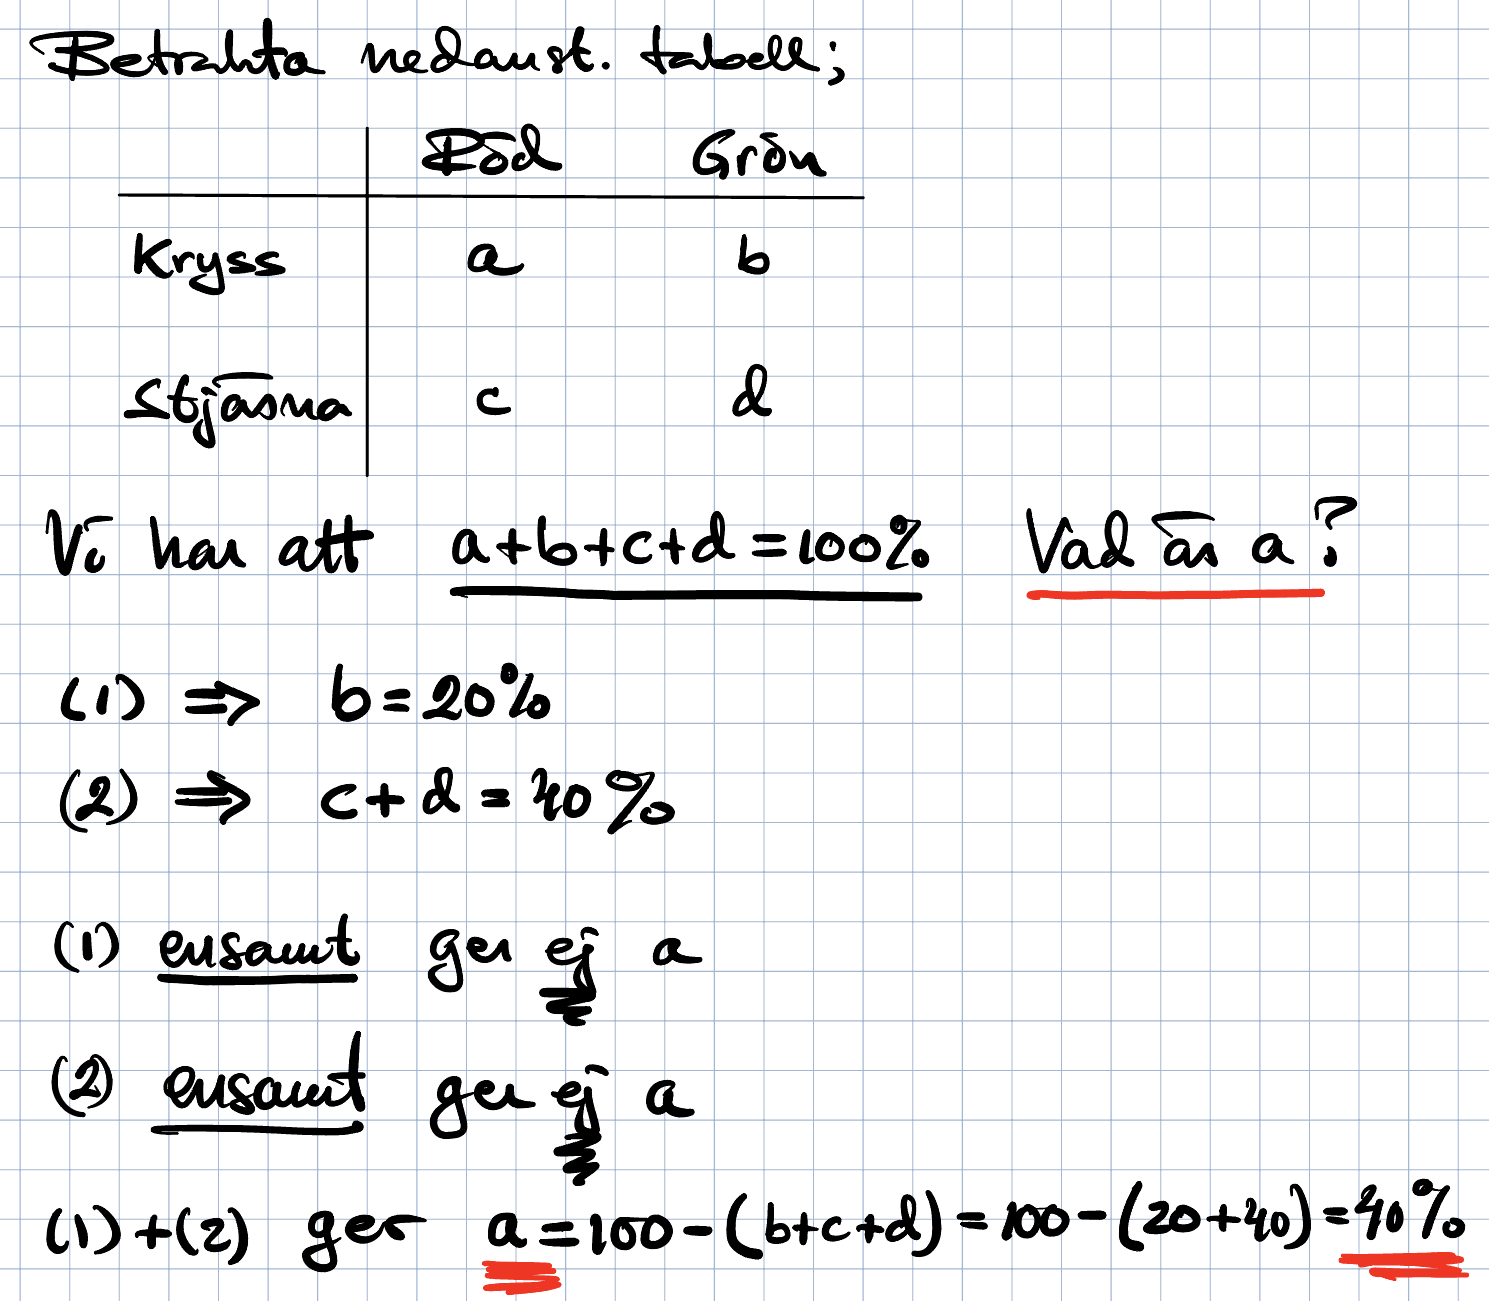 Betrakta nedanst. tabell;
Röd Grön
Kryss a b
Stjärna c d
Vi har att a+b+c+d=100% Vad är a?
(1) ⇒ b=20%
(2) ⇒ c+d=40%
(1) ensamt ger ej a
(2) ensamt ger ej a
(1)+(2) ger a=100-(b+c+d)=100-(20+40)=40%